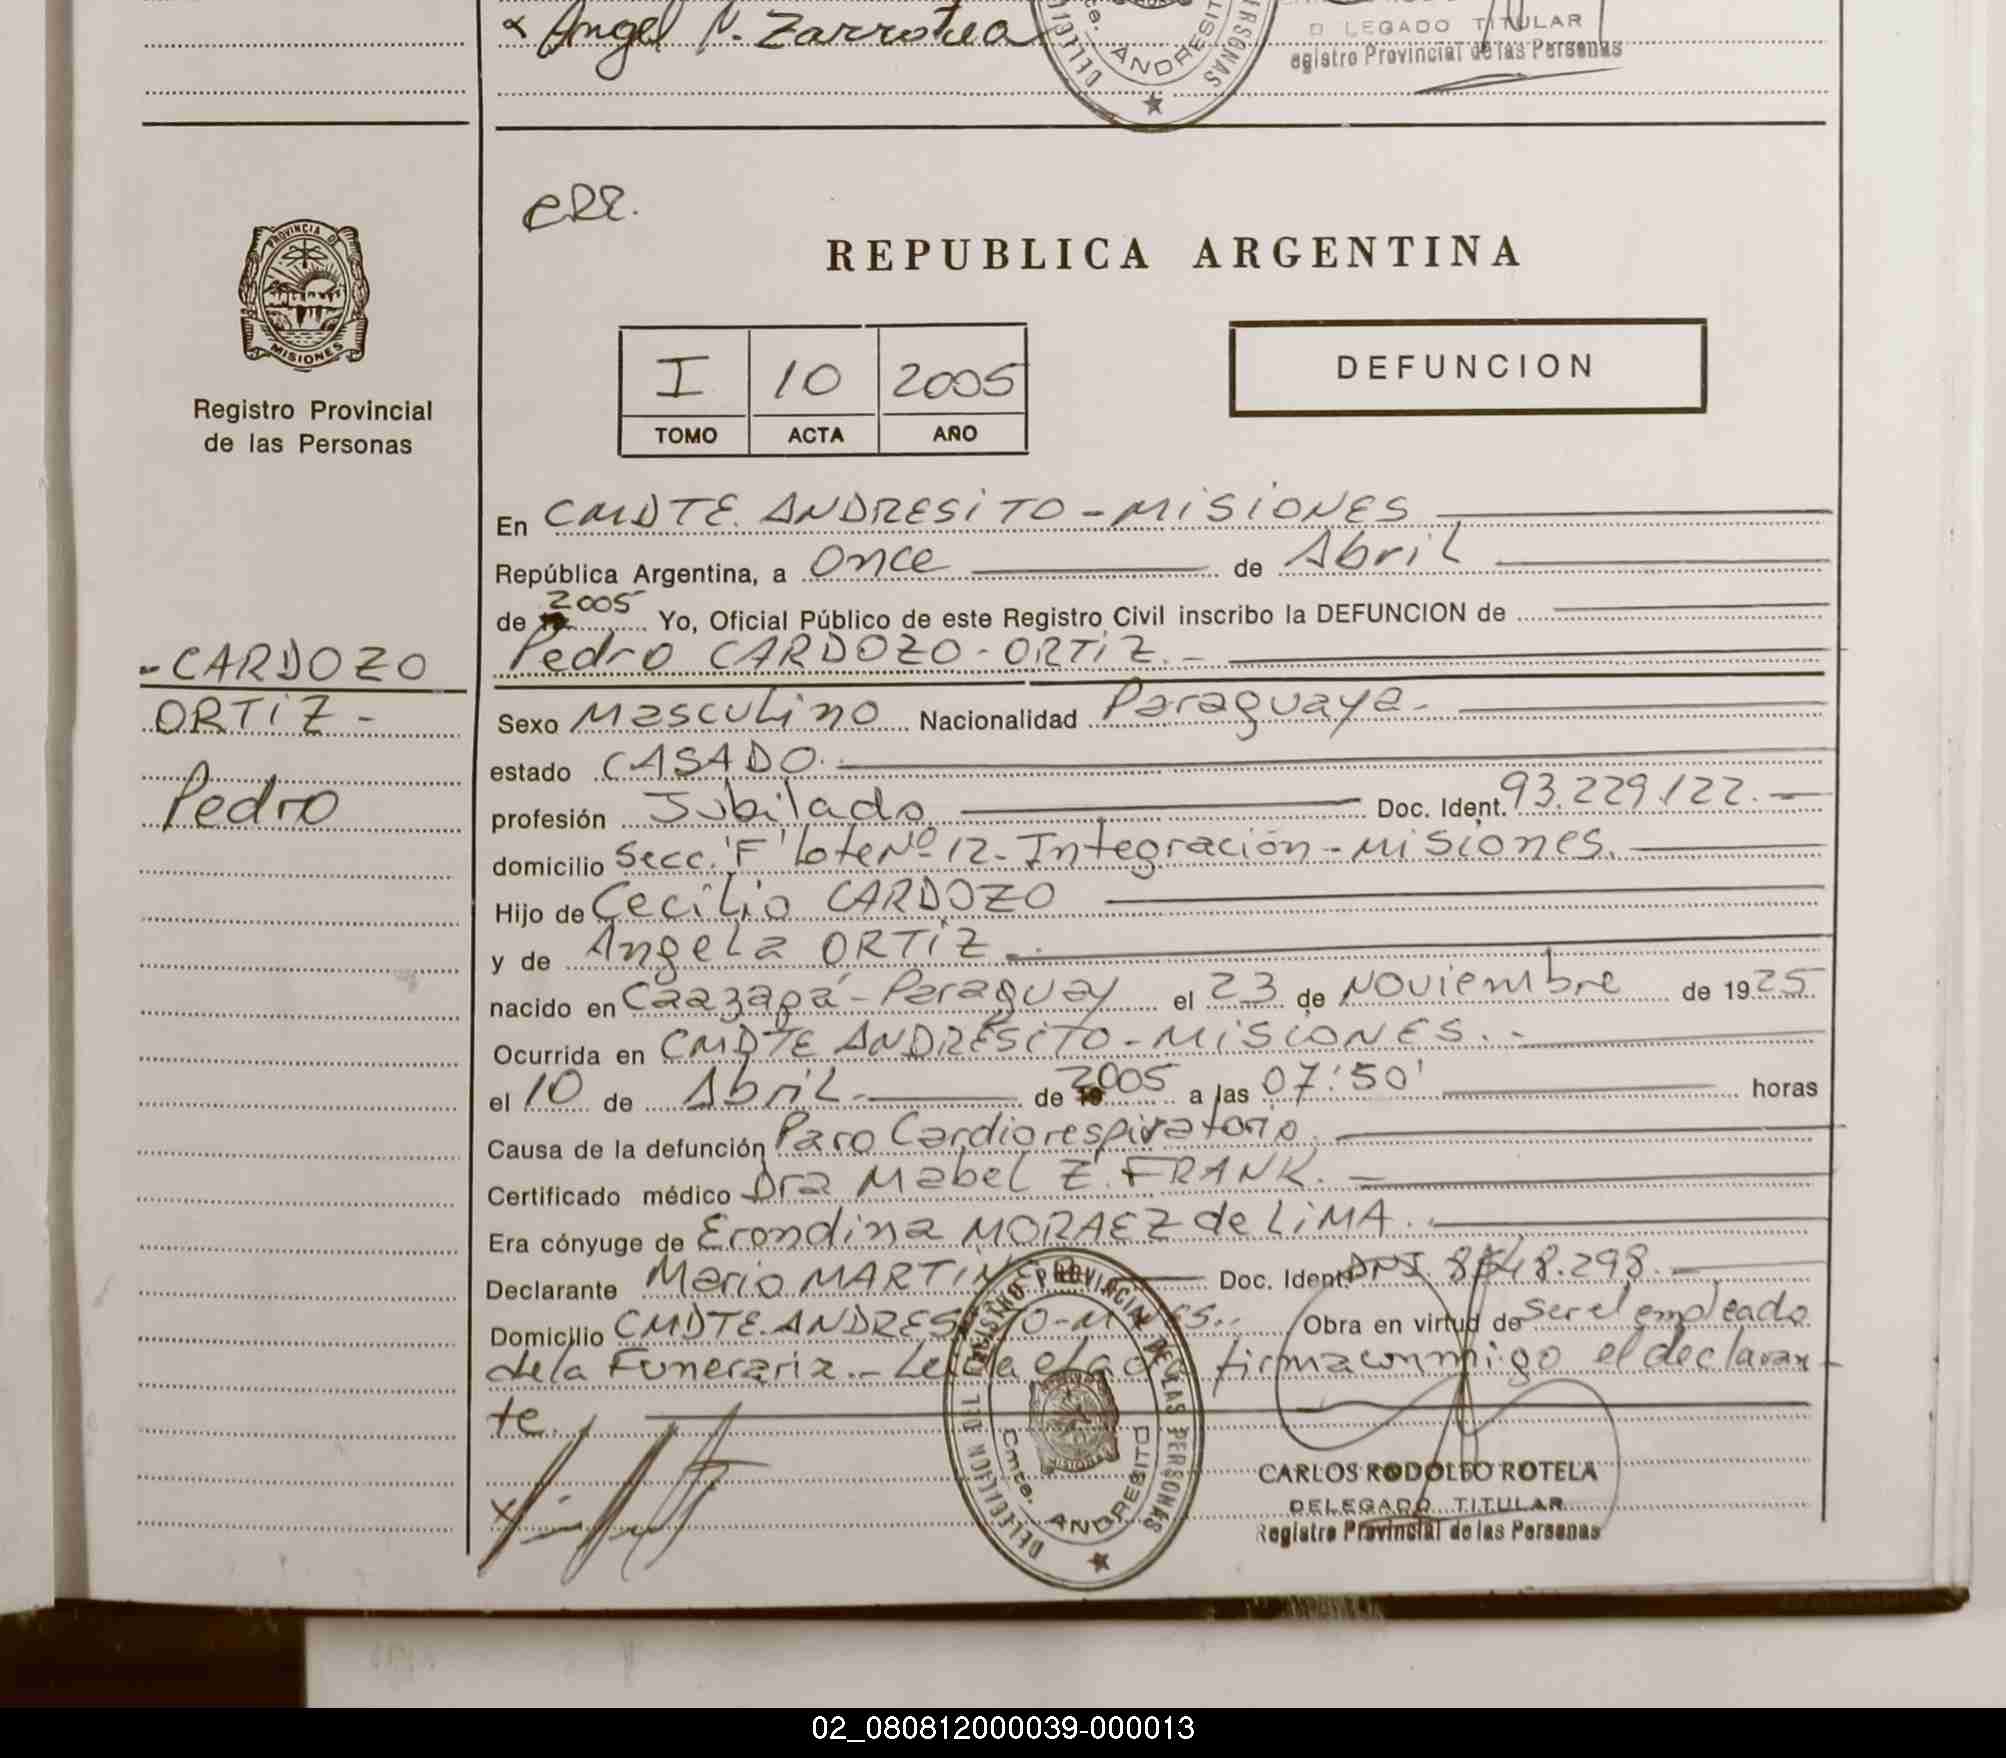 x Angel N. Zarrotea
D LEGADO TITULAR
egistro Provincial de las Personas
ANDRESIT
PROVINCIA D
MISIONES
Registro Provincial
de las Personas
REPUBLICA ARGENTINA
I 10 2005
TOMO ACTA AÑO
DEFUNCION
En CMDTE. ANDRESITO - MISIONES
República Argentina, a Once de Abril
de 2005 Yo, Oficial Público de este Registro Civil inscribo la DEFUNCION de
Pedro CARDOZO - ORTIZ. -
- CARDOZO
ORTIZ -
Pedro
Sexo Masculino Nacionalidad Paraguaya -
estado CASADO.
profesión Jubilado Doc. Ident. 93.229.122. -
domicilio Secc. "F" lote Nº 12 - Integración - Misiones.
Hijo de Cecilio CARDOZO
y de Angela ORTIZ
nacido en Caazapá - Paraguay el 23 de Noviembre de 1925
Ocurrida en CMDTE ANDRESITO - MISIONES. -
el 10 de Abril. de 2005 a las 07:50' horas
Causa de la defunción Paro Cardiorespiratorio.
Certificado médico Dra Mabel Z. FRANK. -
Era cónyuge de Erondina MORAEZ de LIMA.
Declarante Mario MARTINEZ Doc. Ident. DNI.
Domicilio CMDTE. ANDRESITO - Obra en virtud de ser el empleado
de la Funeraria. - Leida el acta firma conmigo el declaran-
te.
DELEGACION DEL REGISTRO PROVINCIAL DE LAS PERSONAS
Cmte. ANDRESITO
CARLOS RODOLFO ROTELA
DELEGADO TITULAR
Registro Provincial de las Personas
02_080812000039-000013